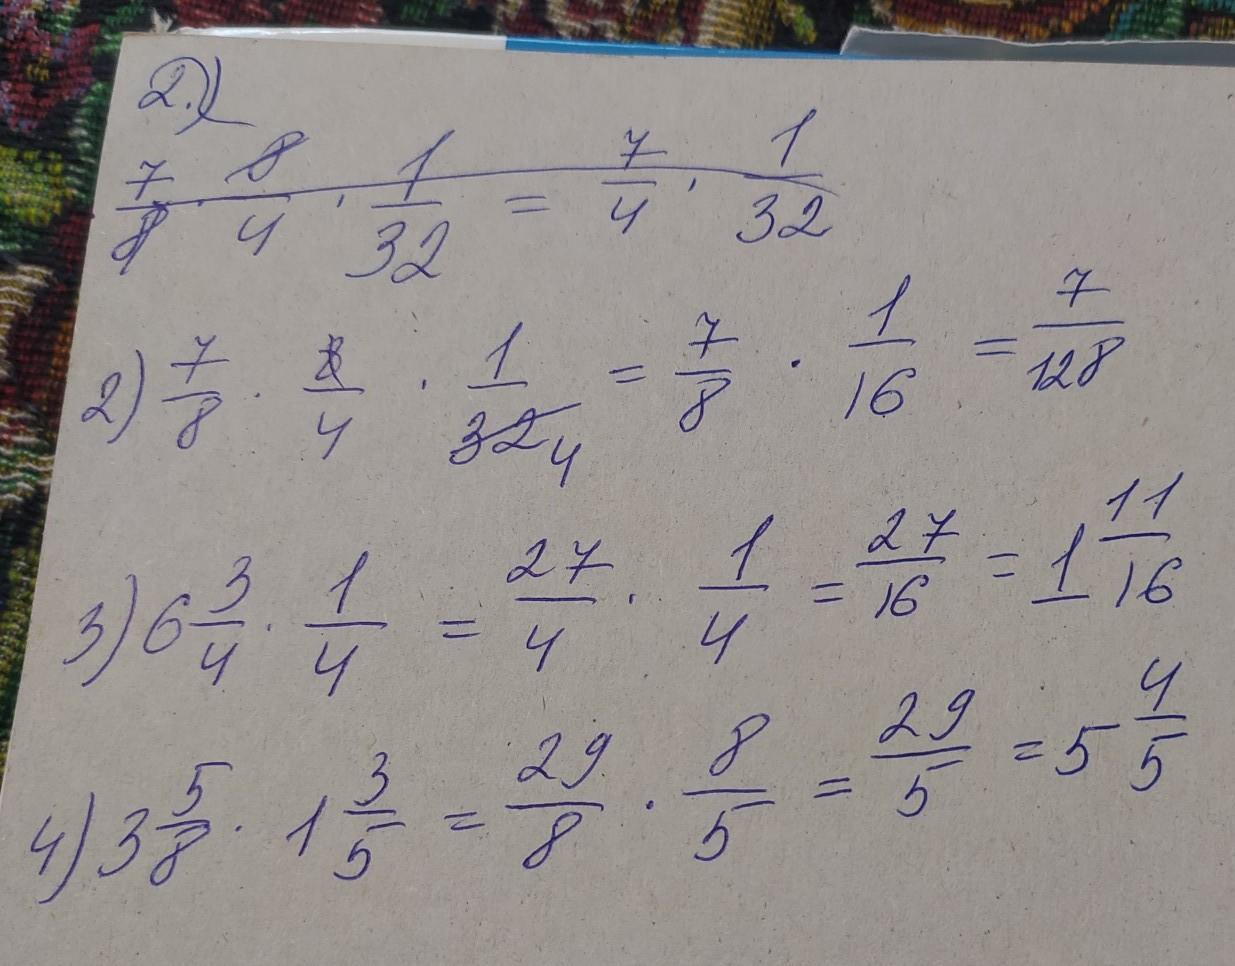 2.)
7/8 · 8/4 · 1/32 = 7/4 · 1/32
2) 7/8 · 8/4 · 1/32 4 = 7/8 · 1/16 = 7/128
3) 6 3/4 · 1/4 = 27/4 · 1/4 = 27/16 = 1 11/16
4) 3 5/8 · 1 3/5 = 29/8 · 8/5 = 29/5 = 5 4/5